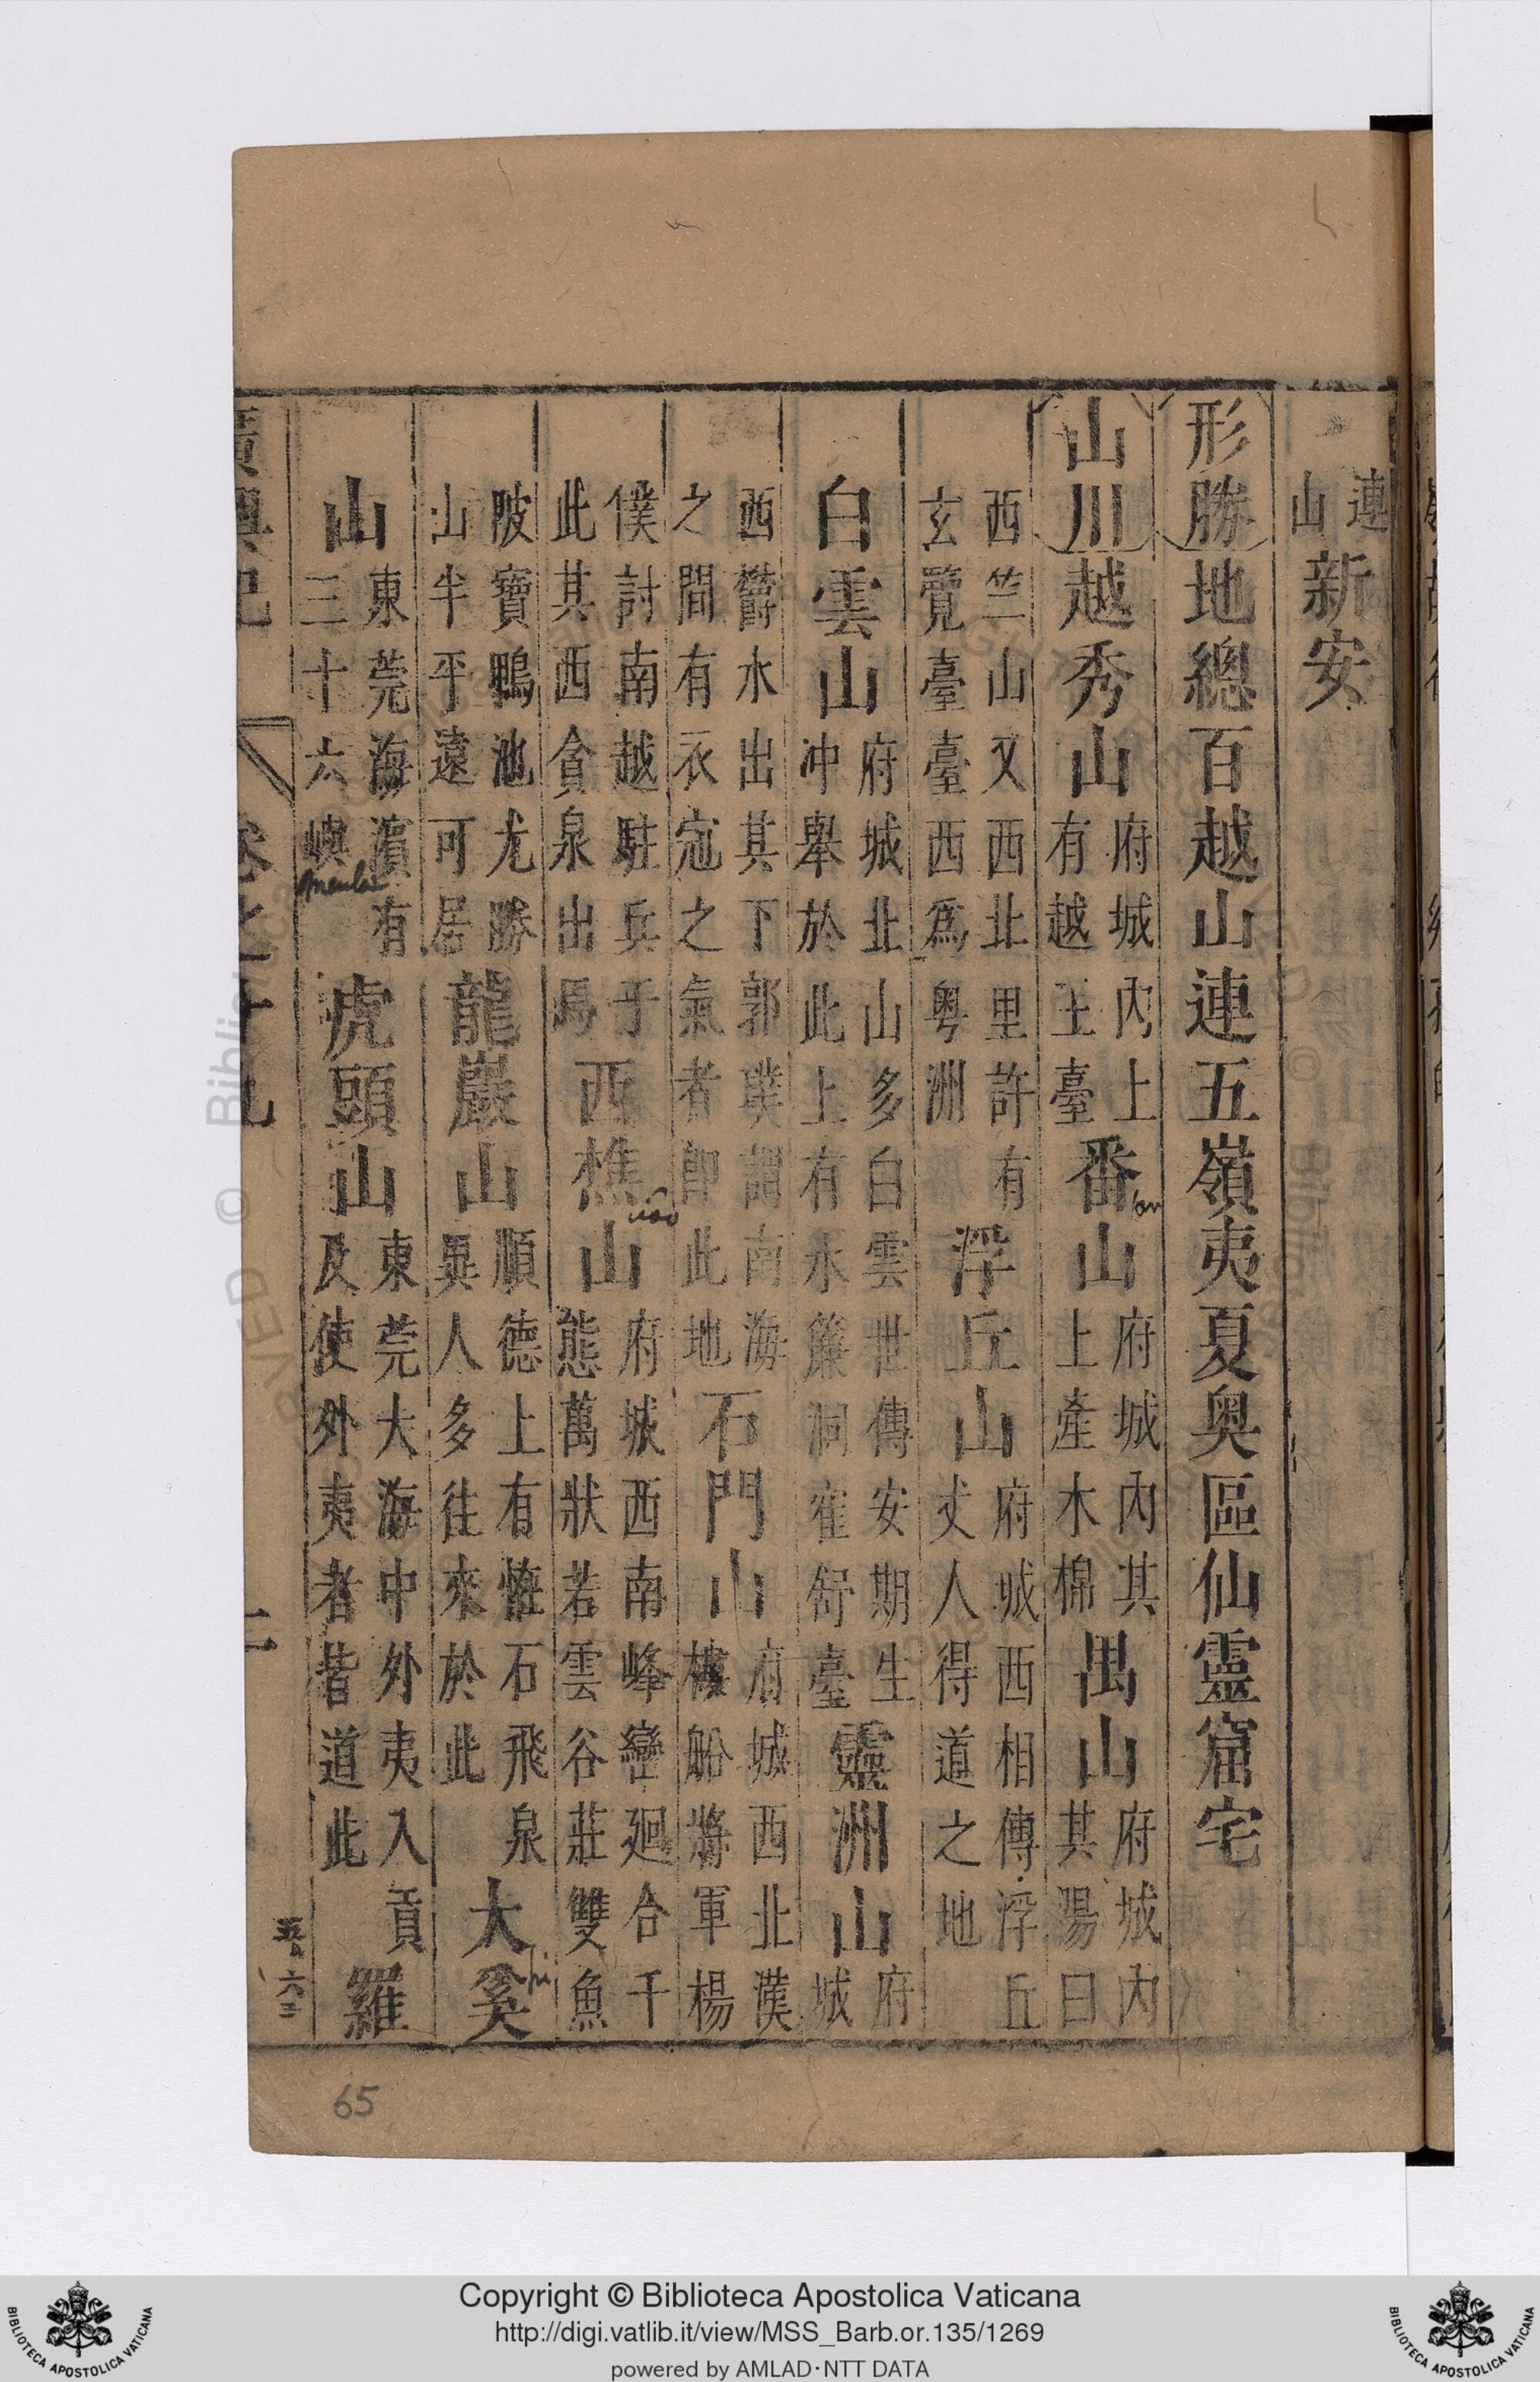 連山新安
形勝地總百越山連五嶺夷夏奥區仙靈窟宅
山川越秀山府城内上有越王臺番山府城内其上產木棉禺山府城内其陽曰
西竺山又西北里許有玄覽臺臺西爲粤洲浮丘山府城西相傳浮丘丈人得道之地
白雲山府城北山多白雲世傳安期生冲舉於此上有水簾洞崔舒臺靈洲山府城
西欝水出其下郭璞謂南海之間有衣冠之氣者即此地石門山府城西北漢樓船將軍楊
僕討南越駐兵于此其西貪泉出焉西樵山府城西南峰巒廻合千態萬狀若雲谷莊雙魚
陂寶鴨池尤勝山半平遠可居龍巖山順德上有恠石飛泉異人多往來於此大奚
山東莞海濵有三十六嶼虎頭山東莞大海中外夷入貢及使外夷者皆道此羅
廣輿記 卷之十九 二
六三
insulae
fan
xiao
hi
65
Copyright © Biblioteca Apostolica Vaticana
http://digi.vatlib.it/view/MSS_Barb.or.135/1269
powered by AMLAD·NTT DATA
BIBLIOTECA APOSTOLICA VATICANA
BIBLIOTECA APOSTOLICA VATICANA